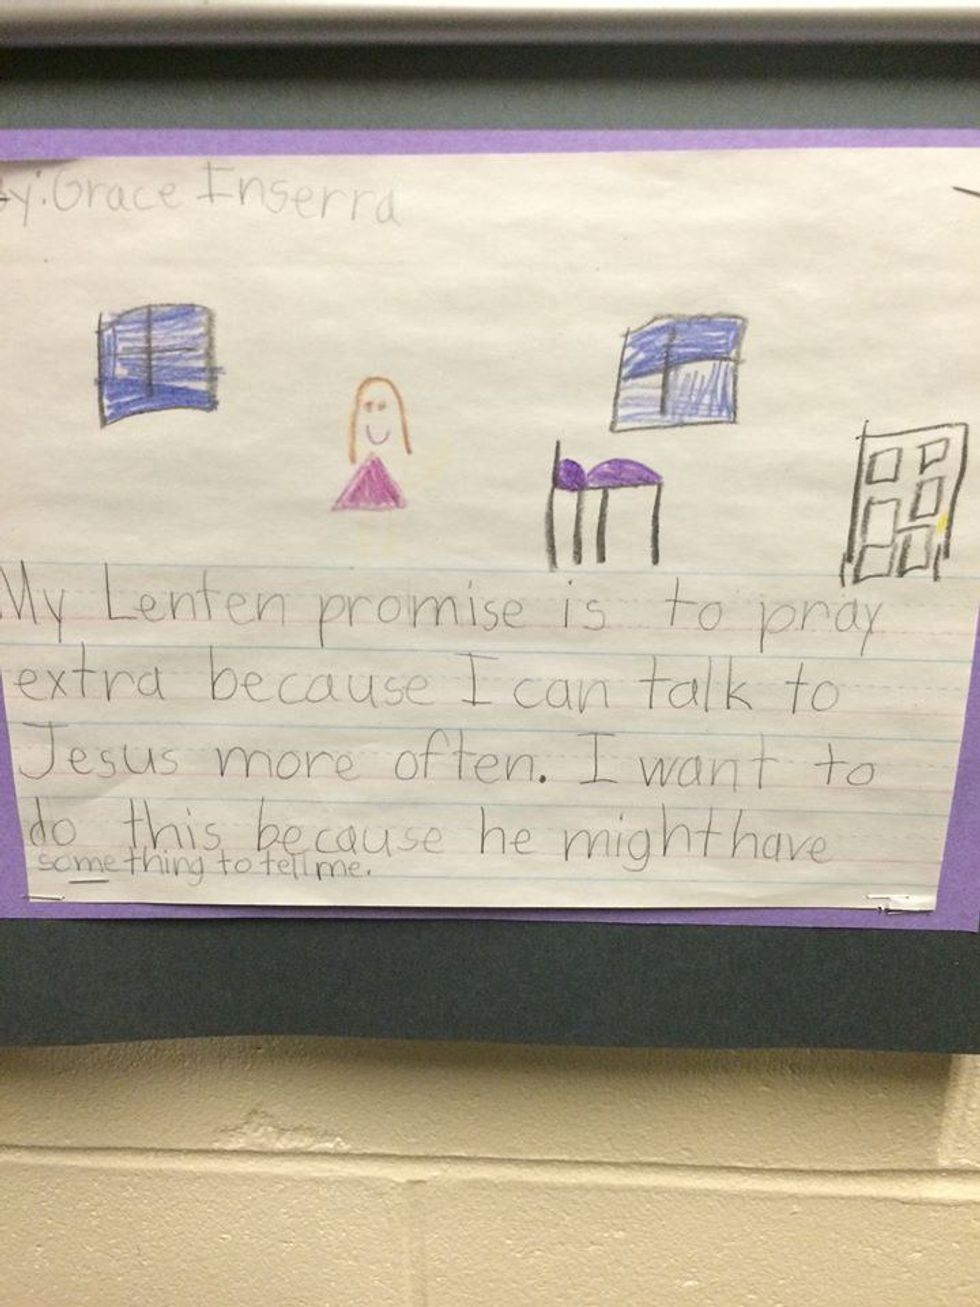 By: Grace Inserra
My Lenten promise is to pray
extra because I can talk to
Jesus more often. I want to
do this because he might have
something to tell me.